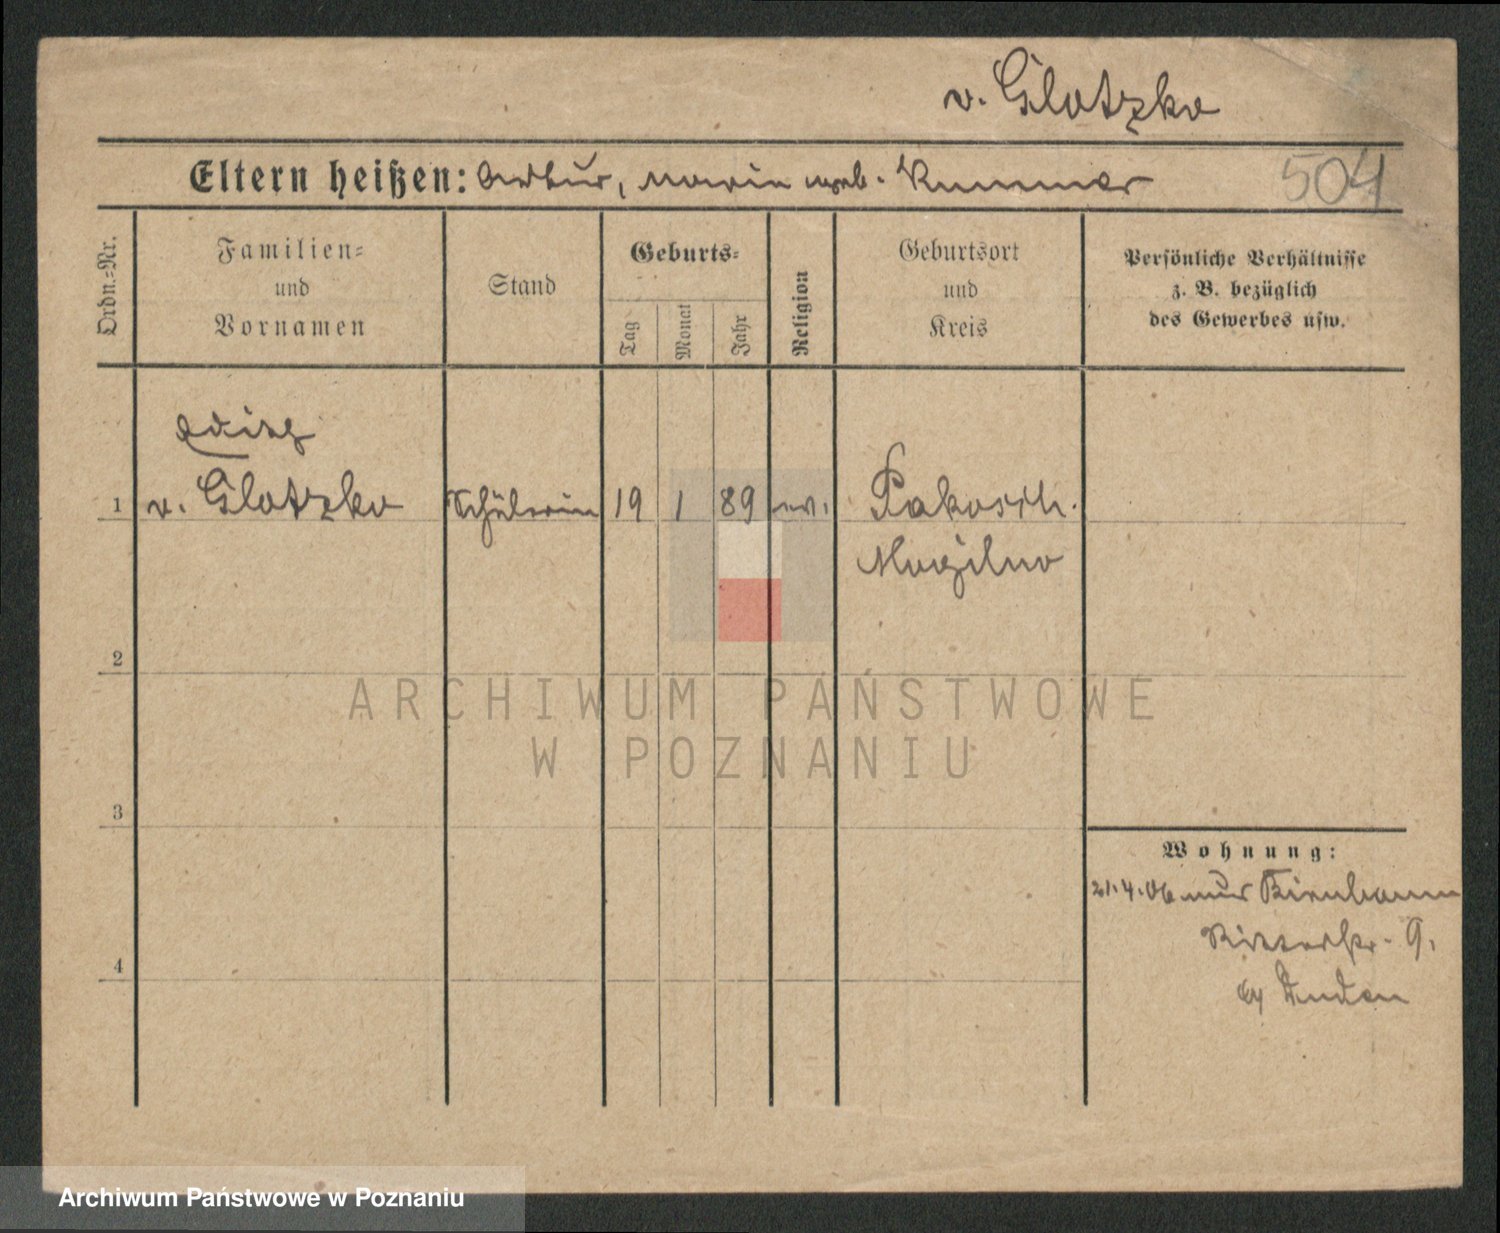 v. Glotzko
Eltern heißen: Arthur, Maria geb. Kummer
504
Ordn.=Nr.
Familien=
und
Vornamen
Stand
Geburts=
Tag
Monat
Jahr
Religion
Geburtsort
und
Kreis
Persönliche Verhältnisse
z. B. bezüglich
des Gewerbes usw.
1
v. Glotzko
Schülerin
19
1
89
ev.
Pakosch.
Mogilno
2
ARCHIWUM PAŃSTWOWE
W POZNANIU
3
Wohnung:
21.4.06 nur Birnbaum
Ritterstr. 9.
4
Archiwum Państwowe w Poznaniu